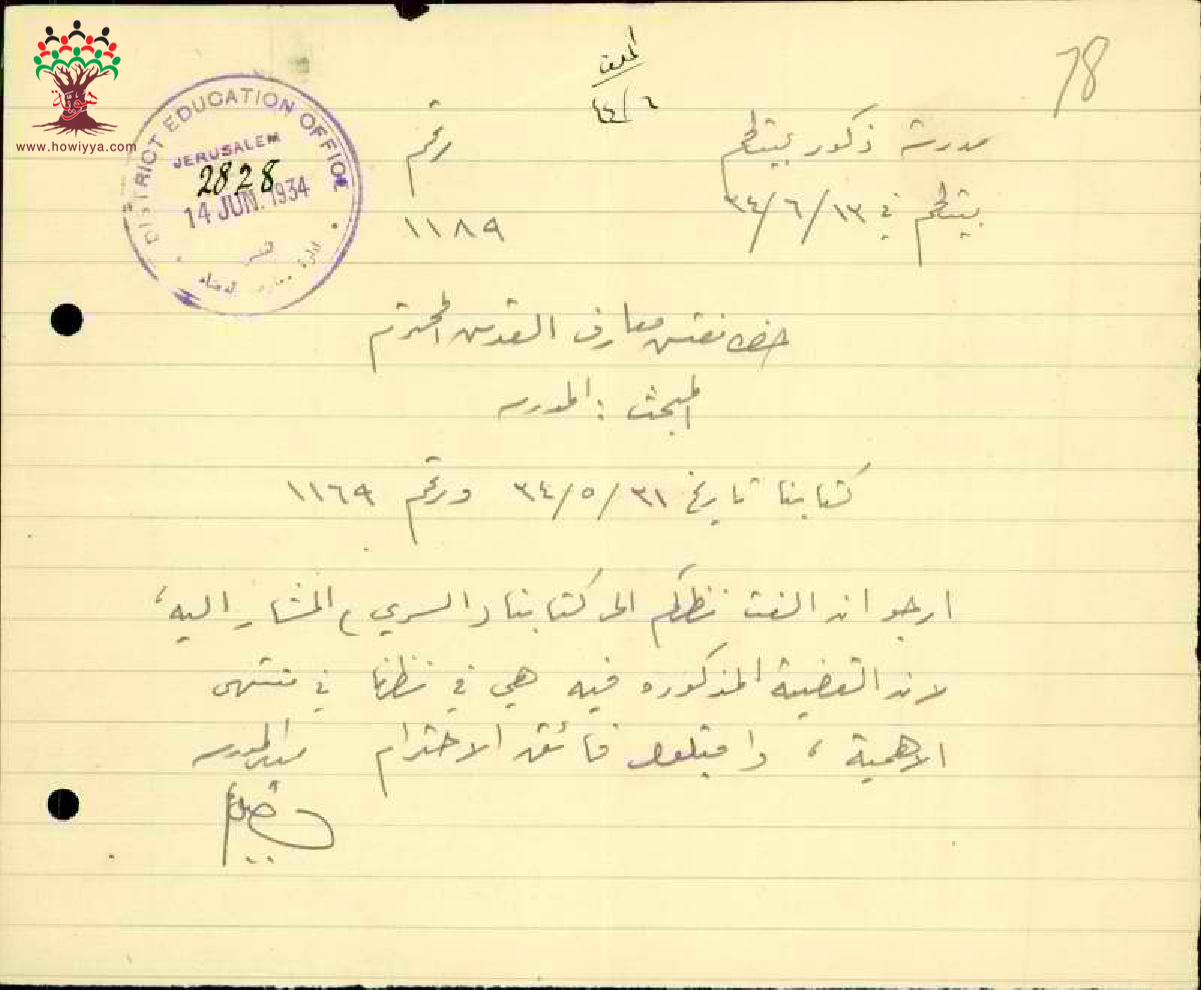 78
الملف
١٤/٦
مدرسة ذكور بيت لحم
رقم
بيت لحم في ٣٤/٦/١٣
١١٨٩
DISTRICT EDUCATION OFFICE
JERUSALEM
2828
14 JUN. 1934
القدس
هوية
www.howiyya.com
حضرة مفتش معارف القدس المحترم
المبحث : المدرسه
كتابنا تاريخ ٣٤/٥/٣١ ورقم ١١٦٩
ارجو ان الفت نظركم الى كتابنا ( السري ) المشار اليه ،
لان القضية المذكوره فيه هي في نظرنا في منتهى
الاهمية ، واقبلوا فائق الاحترام مدير المدرسه